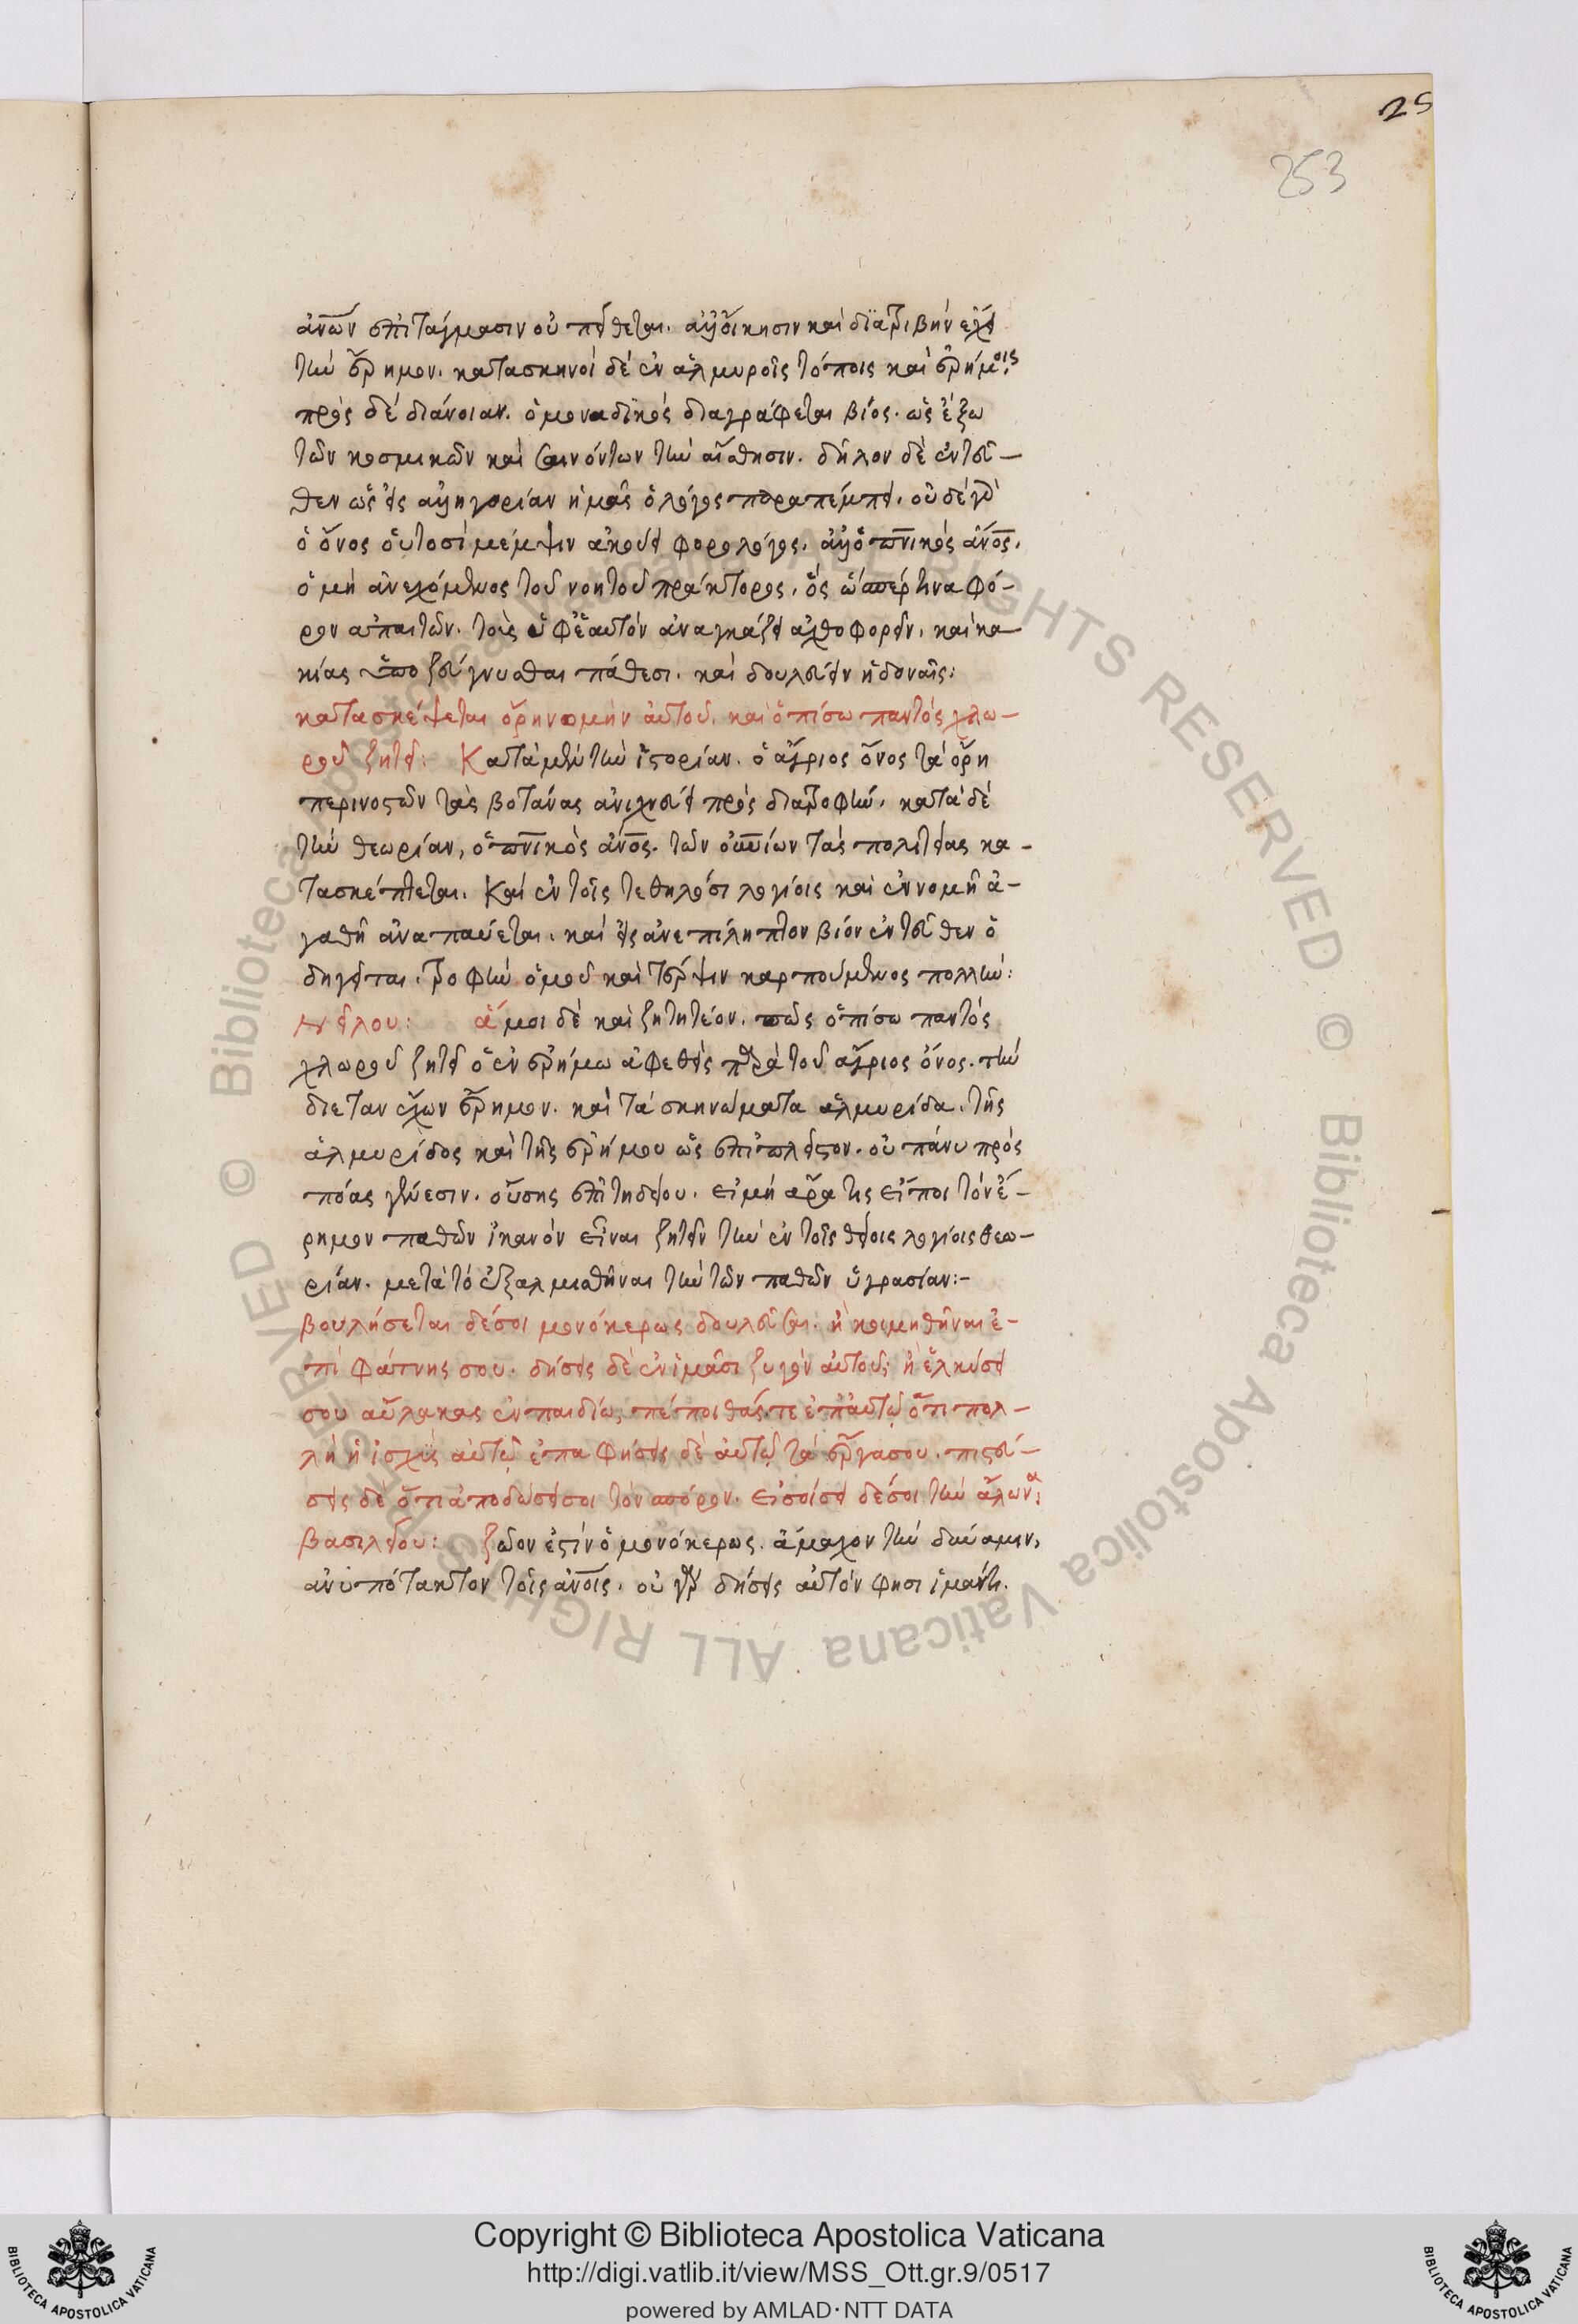 25
253
ἀνῶν ἐπιτάγμασιν οὐ πείθεται. ἀλλ' οἴκησιν καὶ διατριβὴν ἔχει
τὴν ἔρημον. κατασκηνοῖ δὲ ἐν ἁλμυροῖς τόποις καὶ ἐρήμοις
πρὸς δὲ διάνοιαν. ὁ μοναδικὸς διαγράφεται βίος. ὡς ἔξω
τῶν κοσμικῶν καὶ σαινόντων τὴν αἴσθησιν. δῆλον δὲ ἐντεῦ-
θεν ὡς εἰς ἀλληγορίαν ἡμᾶς ὁ λόγος παραπέμπει. οὐδὲ γὰρ
ὁ ὄνος οὑτοσὶ μέμψιν ἀκούει φορολόγος. ἀλλ' ὁ πνικὸς ἀνος.
ὁ μὴ ἀνεχόμενος τοῦ νοητοῦ πράκτορος. ὃς ὥσπερ τινα φό-
ρον ἀπαιτῶν. τοὺς ὑφ' ἑαυτὸν ἀναγκάζει ἀχθοφορεῖν. καὶ κα-
κίας ὑποζεύγνυσθαι πάθεσι. καὶ δουλεύειν ἡδοναῖς:
κατασκέψεται ὄρη νομὴν αὐτοῦ. καὶ ὀπίσω παντὸς χλω-
ροῦ ζητεῖ: Κατὰ μὲν τὴν ἱστορίαν. ὁ ἄγριος ὄνος τὰ ὄρη
περινοστῶν τὰς βοτάνας ἀνιχνεύει πρὸς διατροφήν. κατὰ δὲ
τὴν θεωρίαν, ὁ πνικὸς ἀνος. τῶν οὐνίων τὰς πολιτείας κα-
τασκέπτεται. Καὶ ἐν τοῖς τεθηλόσι λογίοις καὶ ἐν νομῇ ἀ-
γαθῇ ἀναπαύεται. καὶ εἰς ἀνεπίληπτον βίον ἐντεῦθεν ὁ
δηγεῖται. τροφὴν ὁμοῦ καὶ τέρψιν καρπούμενος πολλήν:
Νείλου: ἅμοι δὲ καὶ ζητητέον. πῶς ὀπίσω παντὸς
χλωροῦ ζητεῖ ὁ ἐν ἐρήμω ἀφεθεὶς παρὰ τοῦ ἄγριος ὄνος. τὴν
δίεταν ἔχων ἔρημον. καὶ τὰ σκηνώματα ἁλμυρίδα. τῆς
ἁλμυρίδος καὶ τῆς ἐρήμου ὡς ἐπιπλεῖστον. οὐ πάνυ πρὸς
πόας γένεσιν. οὔσης ἐπιτηδείου. εἰ μὴ ἄρα τις εἴποι τὸν ἔ-
ρημον παθῶν ἱκανὸν εἶναι ζητεῖν τὴν ἐν τοῖς θείοις λογίοις θεω-
ρίαν. μετὰ τὸ ἐξαλμισθῆναι τὴν τῶν παθῶν ὑγρασίαν:-
βουλήσεται δέ σοι μονόκερως δουλεῦσαι. ἢ κοιμηθῆναι ἐ-
πὶ φάτνης σου. δήσεις δὲ ἐν ἱμᾶσι ζυγὸν αὐτοῦ; ἢ ἑλκύσει
σου αὔλακας ἐν παιδίω; πέποιθάς τε ἐπ' αὐτῷ ὅτι πολ-
λὴ ἡ ἰσχὺς αὐτῷ ἐπαφήσεις δὲ αὐτῷ τὰ ἔργα σου. πιστεύ-
σεις δὲ ὅτι ἀποδώσει σοι τὸν σπόρον. εἰσοίσει δέ σοι τὴν ἅλωνα;
βασιλείου: ζῶον ἐστὶν ὁ μονόκερως. ἄμαχον τὴν δύναμιν,
ἀνυπότακτον τοῖς ἀνοις. οὐ γὰρ δήσεις αὐτόν φησι ἱμάντι.
Copyright © Biblioteca Apostolica Vaticana
http://digi.vatlib.it/view/MSS_Ott.gr.9/0517
powered by AMLAD·NTT DATA